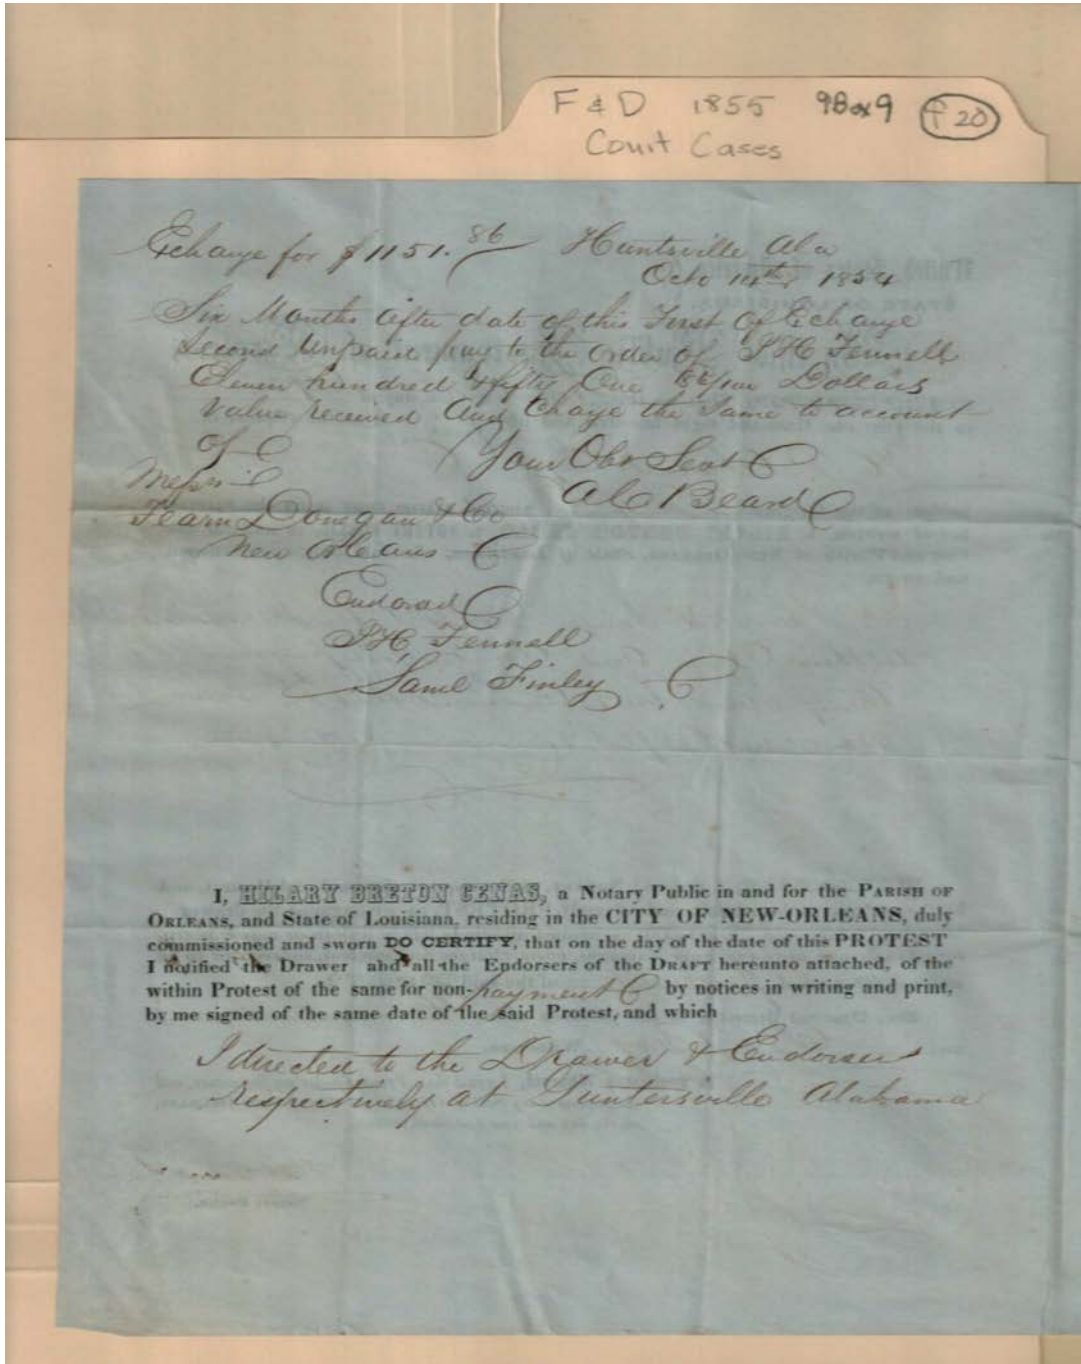 F & D 1855 98049 F 20
Court Cases
Exchange for $1151.86 Huntsville Ala
Octo 14th 1854
Six Months after date of this First of Exchange
Second Unpaid pay to the order of
Fennell
Eleven hundred & fifty One 86/100 Dollars
Value received And Charge the Same to account
of Your Obt Servt
Messrs
A C Beard
Fearn Donegan & Co
New Orleans
Endorsed
Fennell
Saml Finley
I, HILARY BRETON CENAS, a Notary Public in and for the PARISH OF
ORLEANS, and State of Louisiana, residing in the CITY OF NEW-ORLEANS, duly
commissioned and sworn DO CERTIFY, that on the day of the date of this PROTEST
I notified the Drawer and all the Endorsers of the DRAFT hereunto attached, of the
within Protest of the same for non-payment by notices in writing and print,
by me signed of the same date of the said Protest, and which
I directed to the Drawer & Endorsers
respectively at Guntersville Alabama